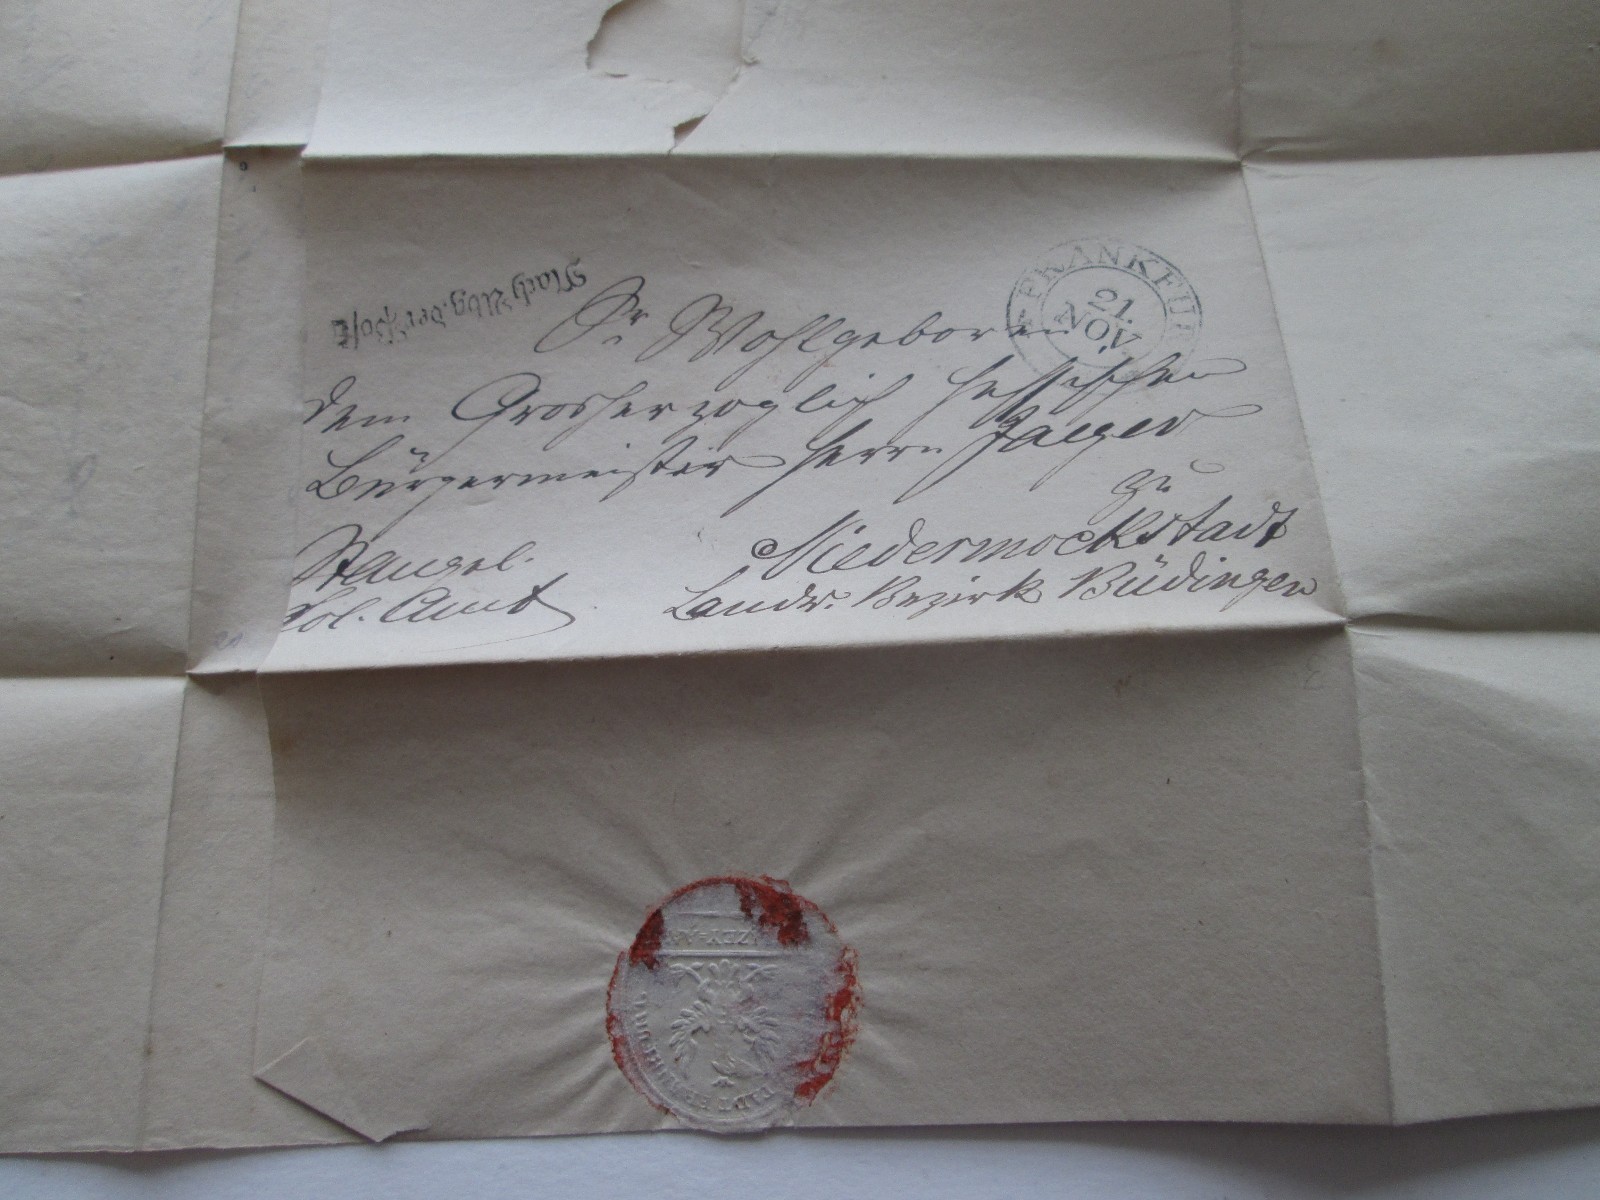 Nach Abg. der Post
FRANKFU
21.
NOV.
Sr Wohlgeboren
dem Grosherzoglich Hessischen
Bürgermeister Herrn Jaeger
zu
Niedermockstadt
Landr. Bezirk Büdingen
Pol. Amt